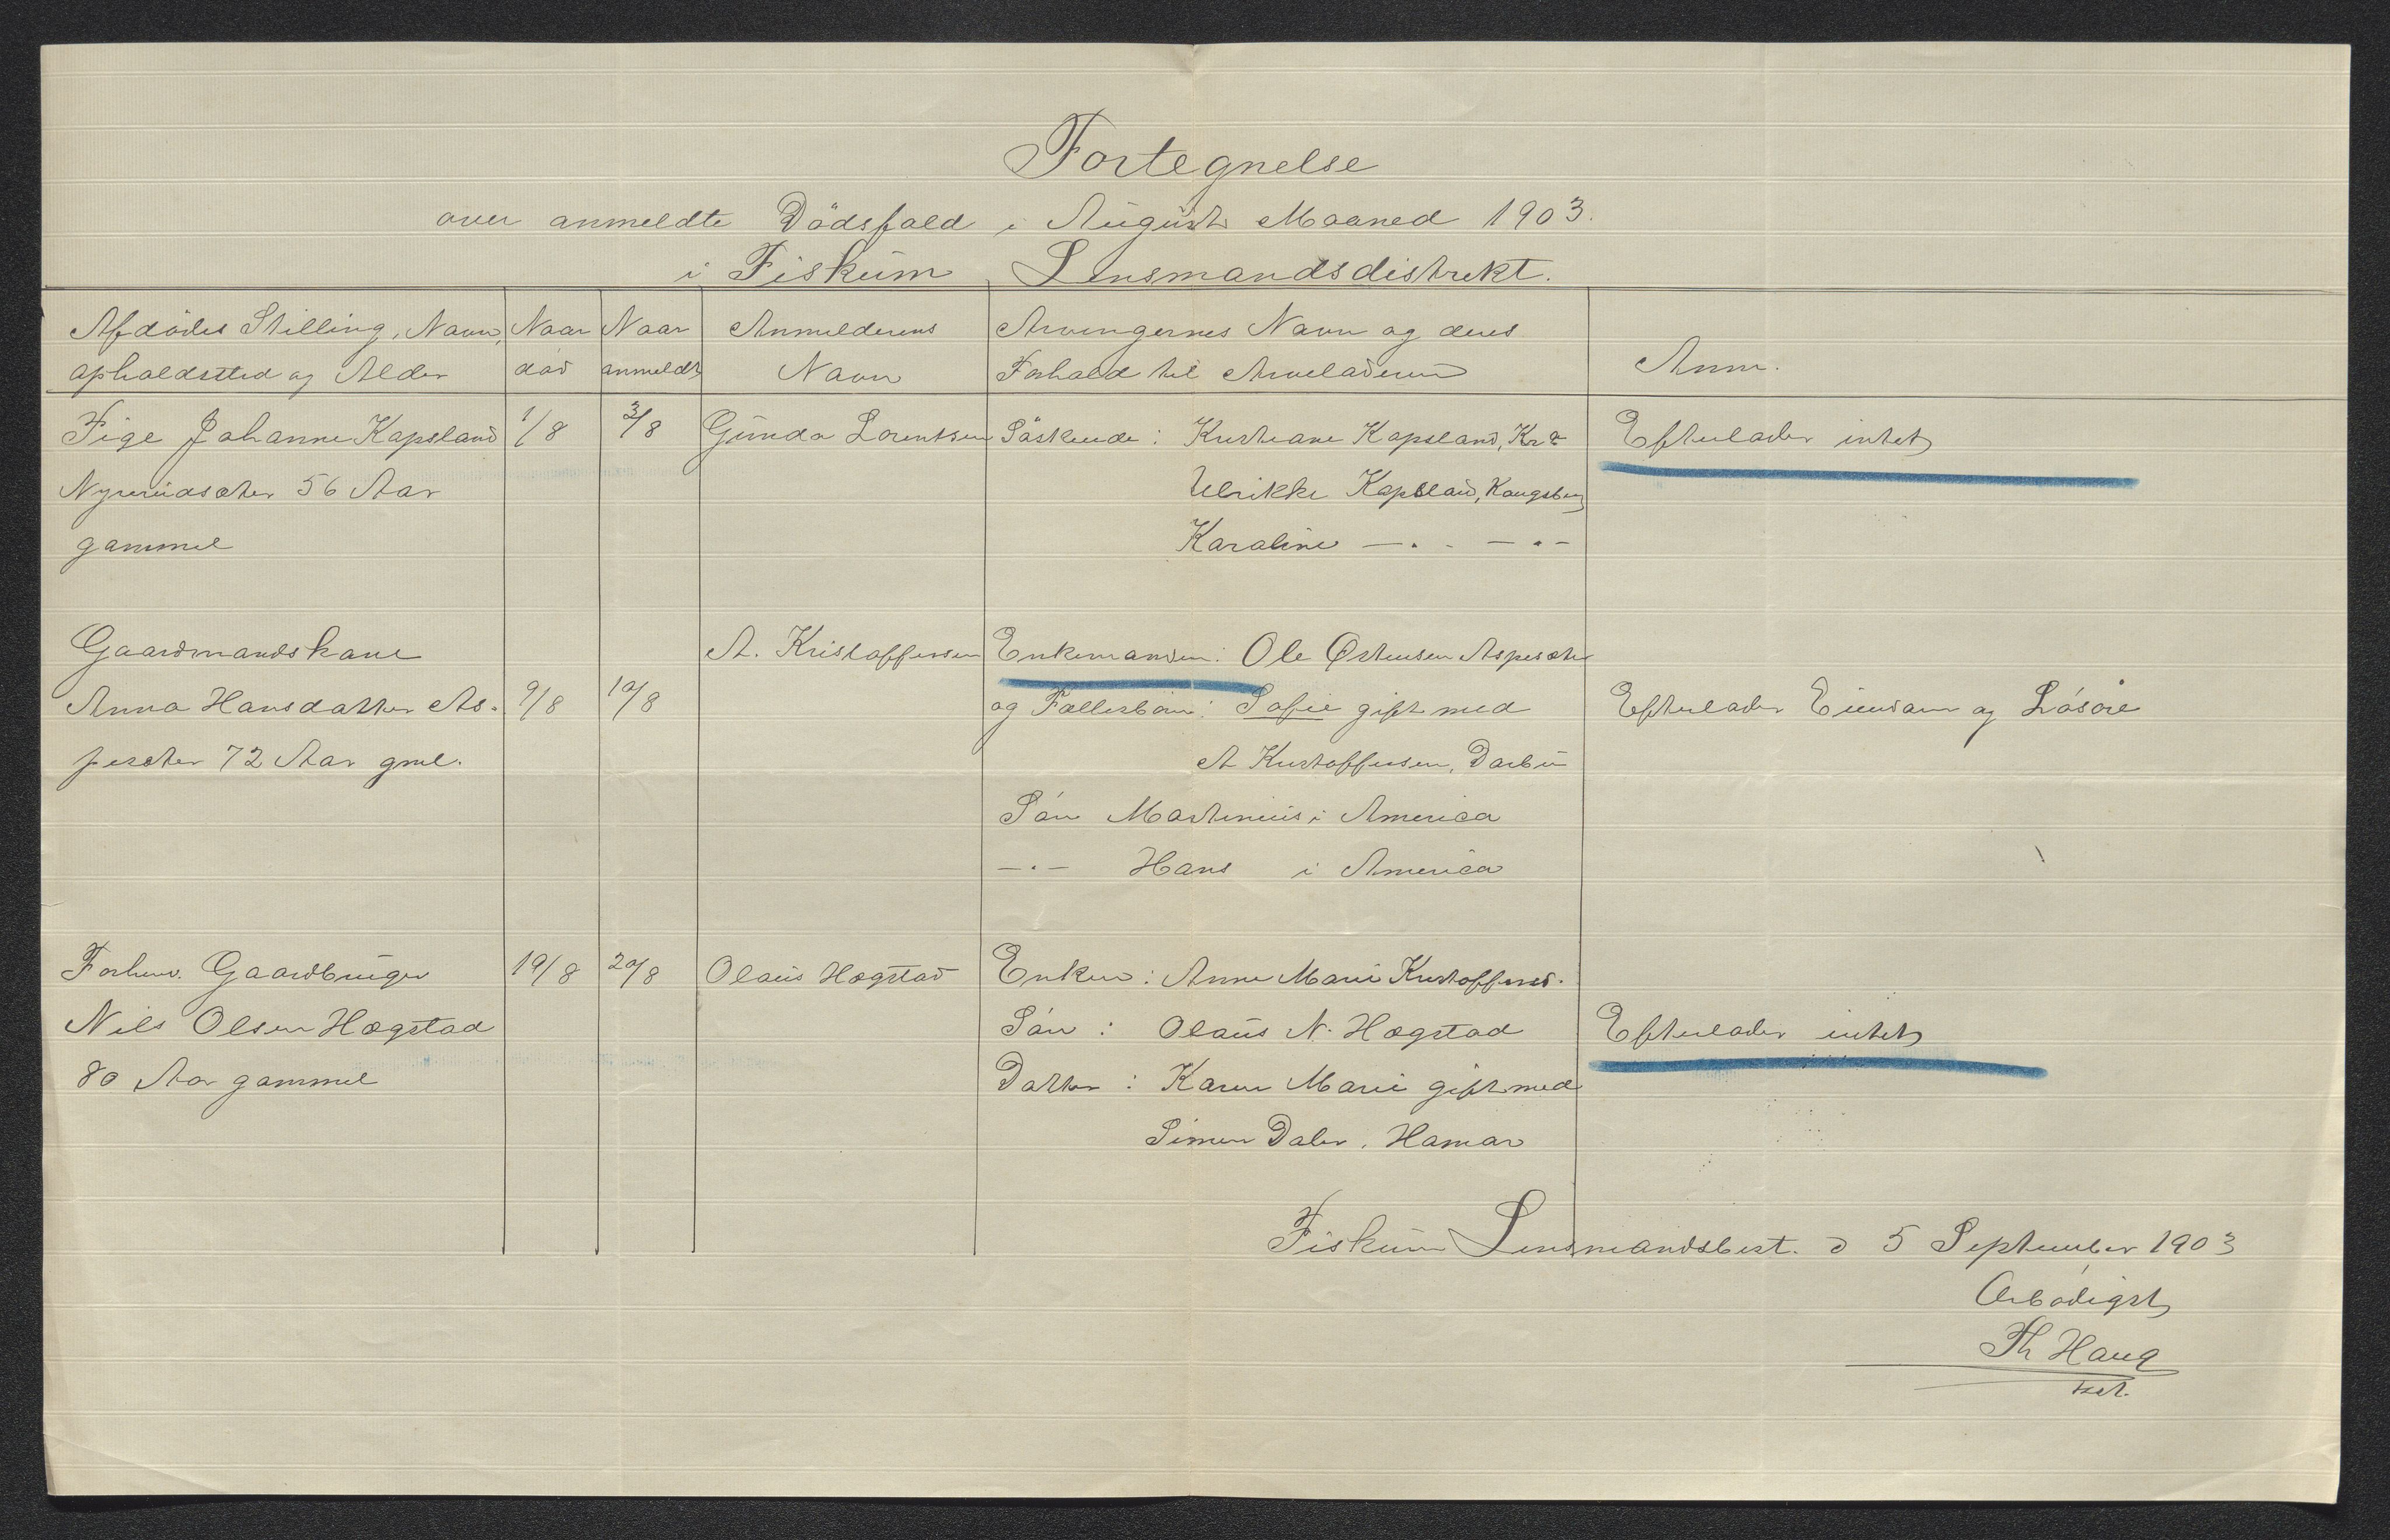 Fortegnelse
over anmeldte Dödsfald i August Maaned 1903.
i Fiskum Lensmandsdistrikt.
Afdödes Stilling, Navn,
opholdssted og Alder
Naar
död
Naar
anmeldt
Anmelderens
Navn
Arvingernes Navn og deres
Forhold til Arveladeren
Anm.
Pige Johanne Kapsland
56 Aar
gammel
1/8
3/8
Gunda Lorentsen
Söskende: Kristiane Kapsland, Kr.a
Ulrikke Kapsland, Kongsberg
Karoline —〃— —〃—
Efterlader intet
Gaardmandskone
Anna Hansdatter As-
pesæter 72 Aar gml.
9/8
10/8
A. Kristoffersen
Enkemanden: Ole Østensen Aspesæter
og Fællesbörn: Sofie gift med
A Kristoffersen, Darbu
Sön Martinius i America
—〃— Hans i America
Efterlader Eiendom og Lösöre
Forhenv. Gaardbruger
Nils Olsen Hogstad
80 Aar gammel
19/8
20/8
Olaus Hogstad
Enken: Anne Marie Kristoffersd.
Sön: Olaus N. Hogstad
Datter: Karen Marie gift med
Simen Daler, Hamar
Efterlader intet
Fiskum Lensmandsbest. d 5 September 1903
Ærbödigst
Th Haug